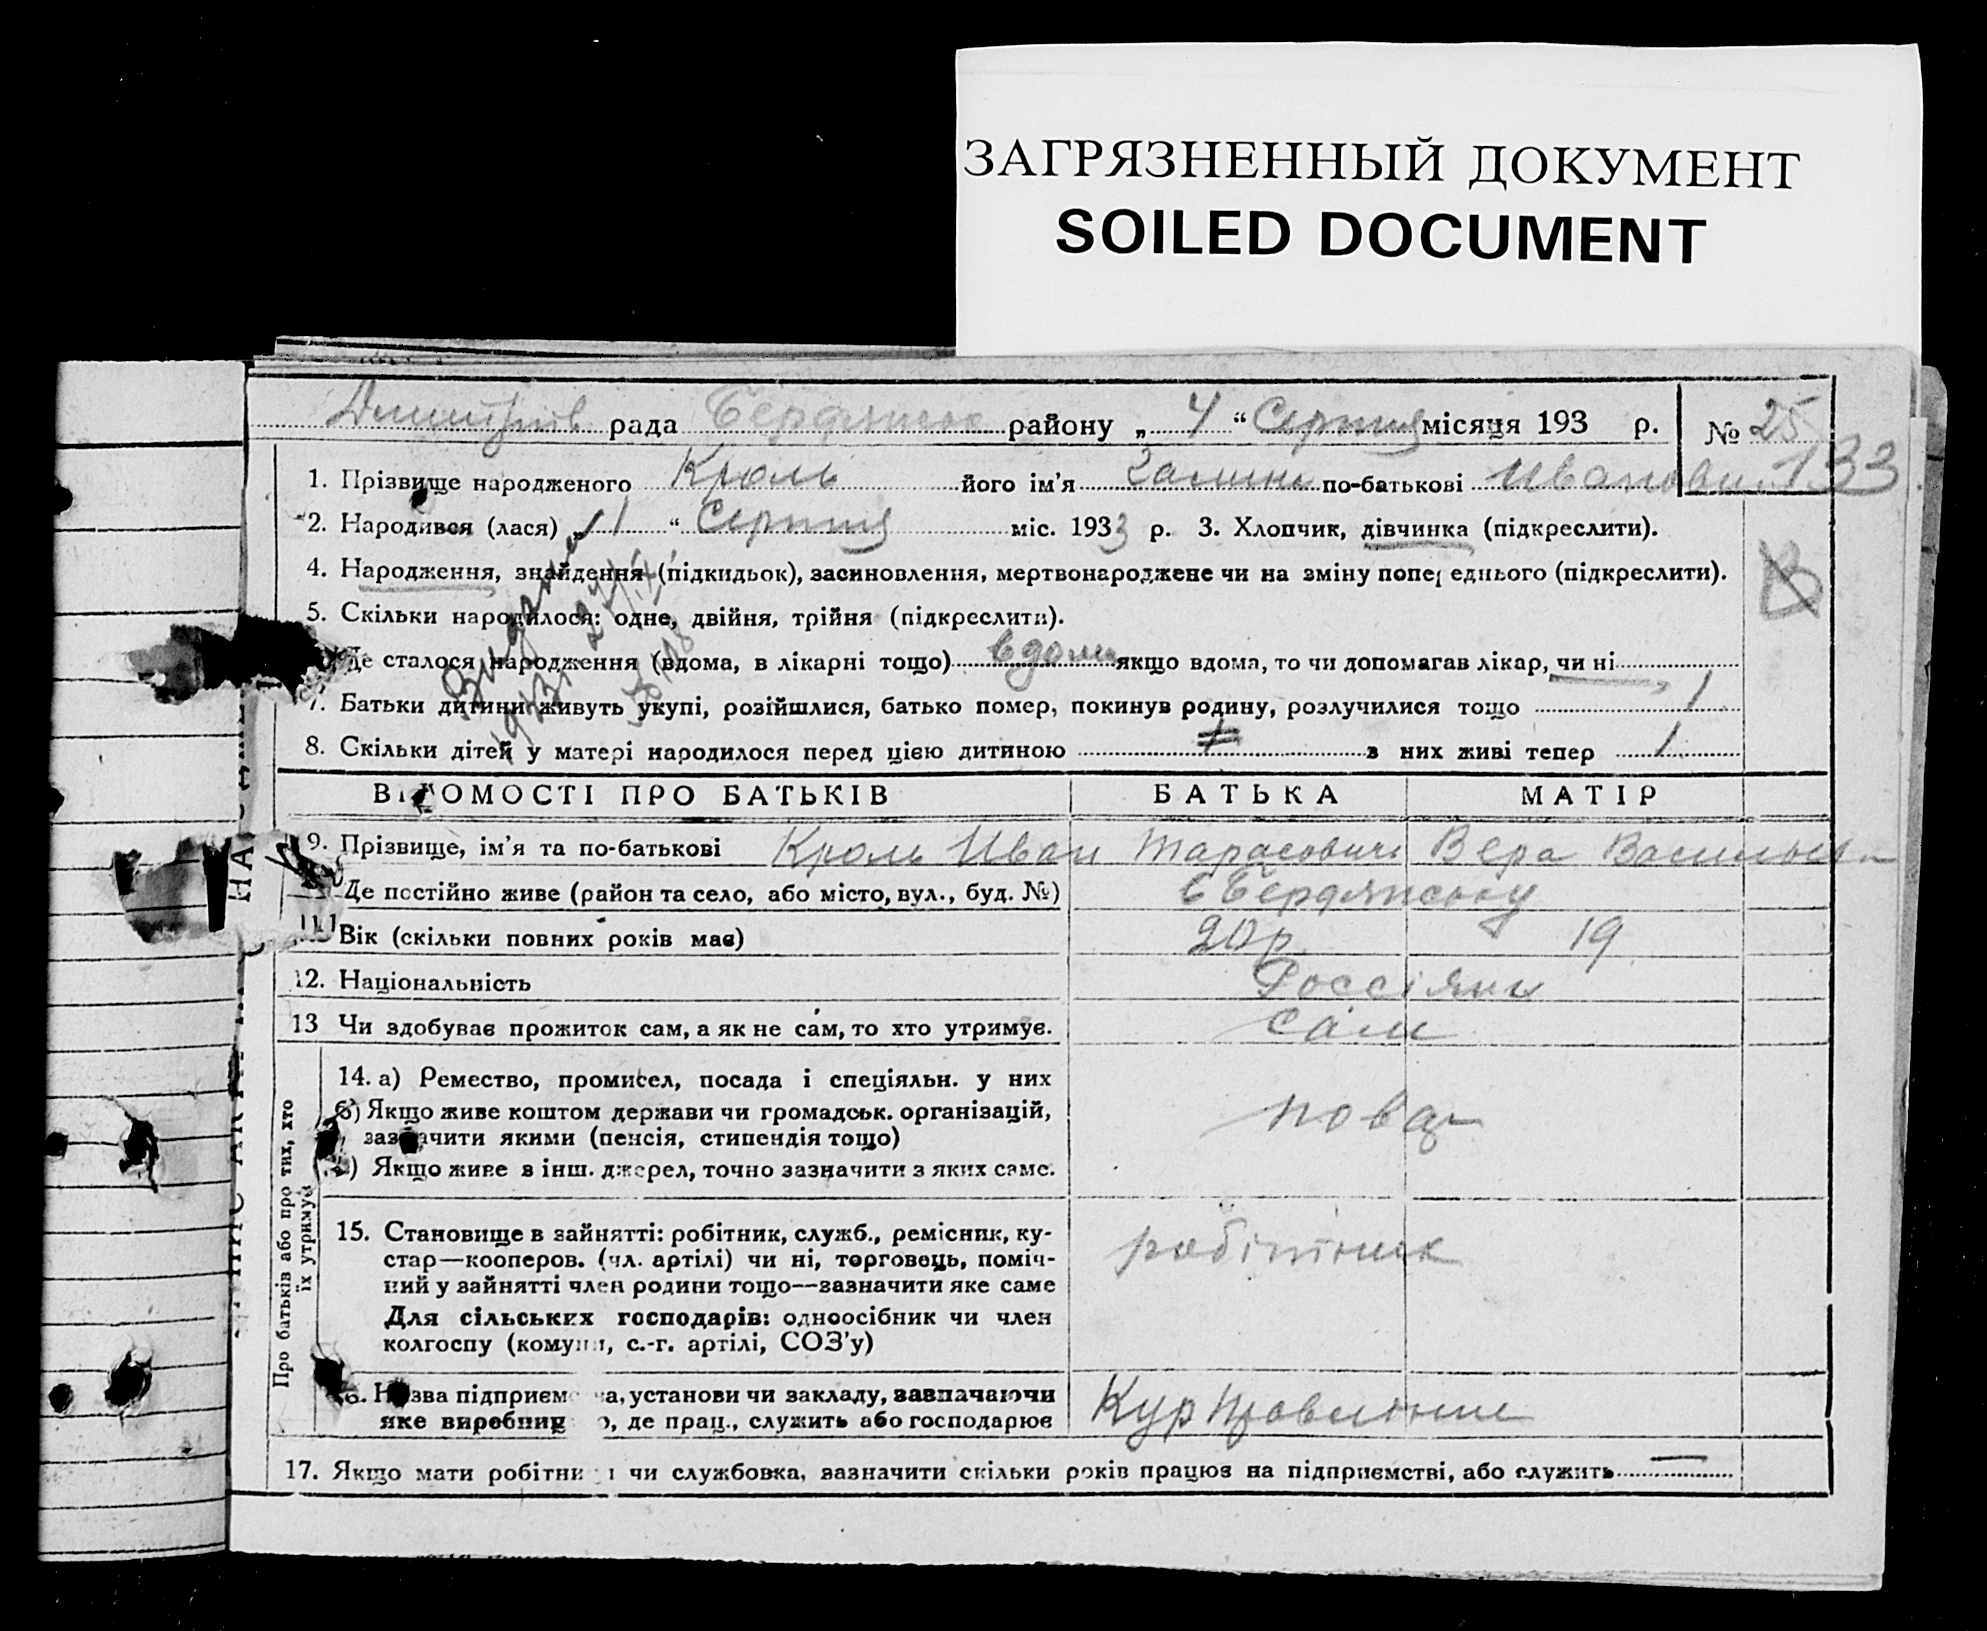 ЗАГРЯЗНЕННЫЙ ДОКУМЕНТ
SOILED DOCUMENT
рада району „ 4 “ Серпня місяця 193 р. № 25
133
1. Прізвище народженого Кроль його ім'я по-батькові
2. Народився (лася) „ 1 “ Серпня міс. 1933 р. 3. Хлопчик, дівчинка (підкреслити).
4. Народження, знайдення (підкидьок), засиновлення, мертвонароджене чи на зміну попереднього (підкреслити).
5. Скільки народилося: одне, двійня, трійня (підкреслити).
Де сталося народження (вдома, в лікарні тощо) вдома якщо вдома, то чи допомагав лікар, чи ні
7. Батьки дитини живуть укупі, розійшлися, батько помер, покинув родину, розлучилися тощо 1
8. Скільки дітей у матері народилося перед цією дитиною з них живі тепер 1
ВІДОМОСТІ ПРО БАТЬКІВ БАТЬКА МАТІР
9. Прізвище, ім'я та по-батькові Кроль Иван Тарасович Вера
Де постійно живе (район та село, або місто, вул., буд. №) в Бердянську
Вік (скільки повних років має) 20р 19
12. Національність Россіяни
13 Чи здобуває прожиток сам, а як не сам, то хто утримує. сам
Про батьків або про тих, хто їх утримує
14. а) Ремество, промисел, посада і спеціяльн. у них
б) Якщо живе коштом держави чи громадськ. організацій,
зазначити якими (пенсія, стипендія тощо)
в) Якщо живе в інш. джерел, точно зазначити з яких саме.
15. Становище в зайнятті: робітник, служб., ремісник, ку-
стар—кооперов. (чл. артілі) чи ні, торговець, поміч-
ний у зайнятті член родини тощо—зазначити яке саме
робітник
Для сільських господарів: одноосібник чи член
колгоспу (комуни, с.-г. артілі, СОЗ'у)
Назва підприємства, установи чи закладу, зазначаючи
яке виробництво, де прац., служить або господарює
17. Якщо мати робітниця чи службовка, зазначити скільки років працює на підприємстві, або служить —